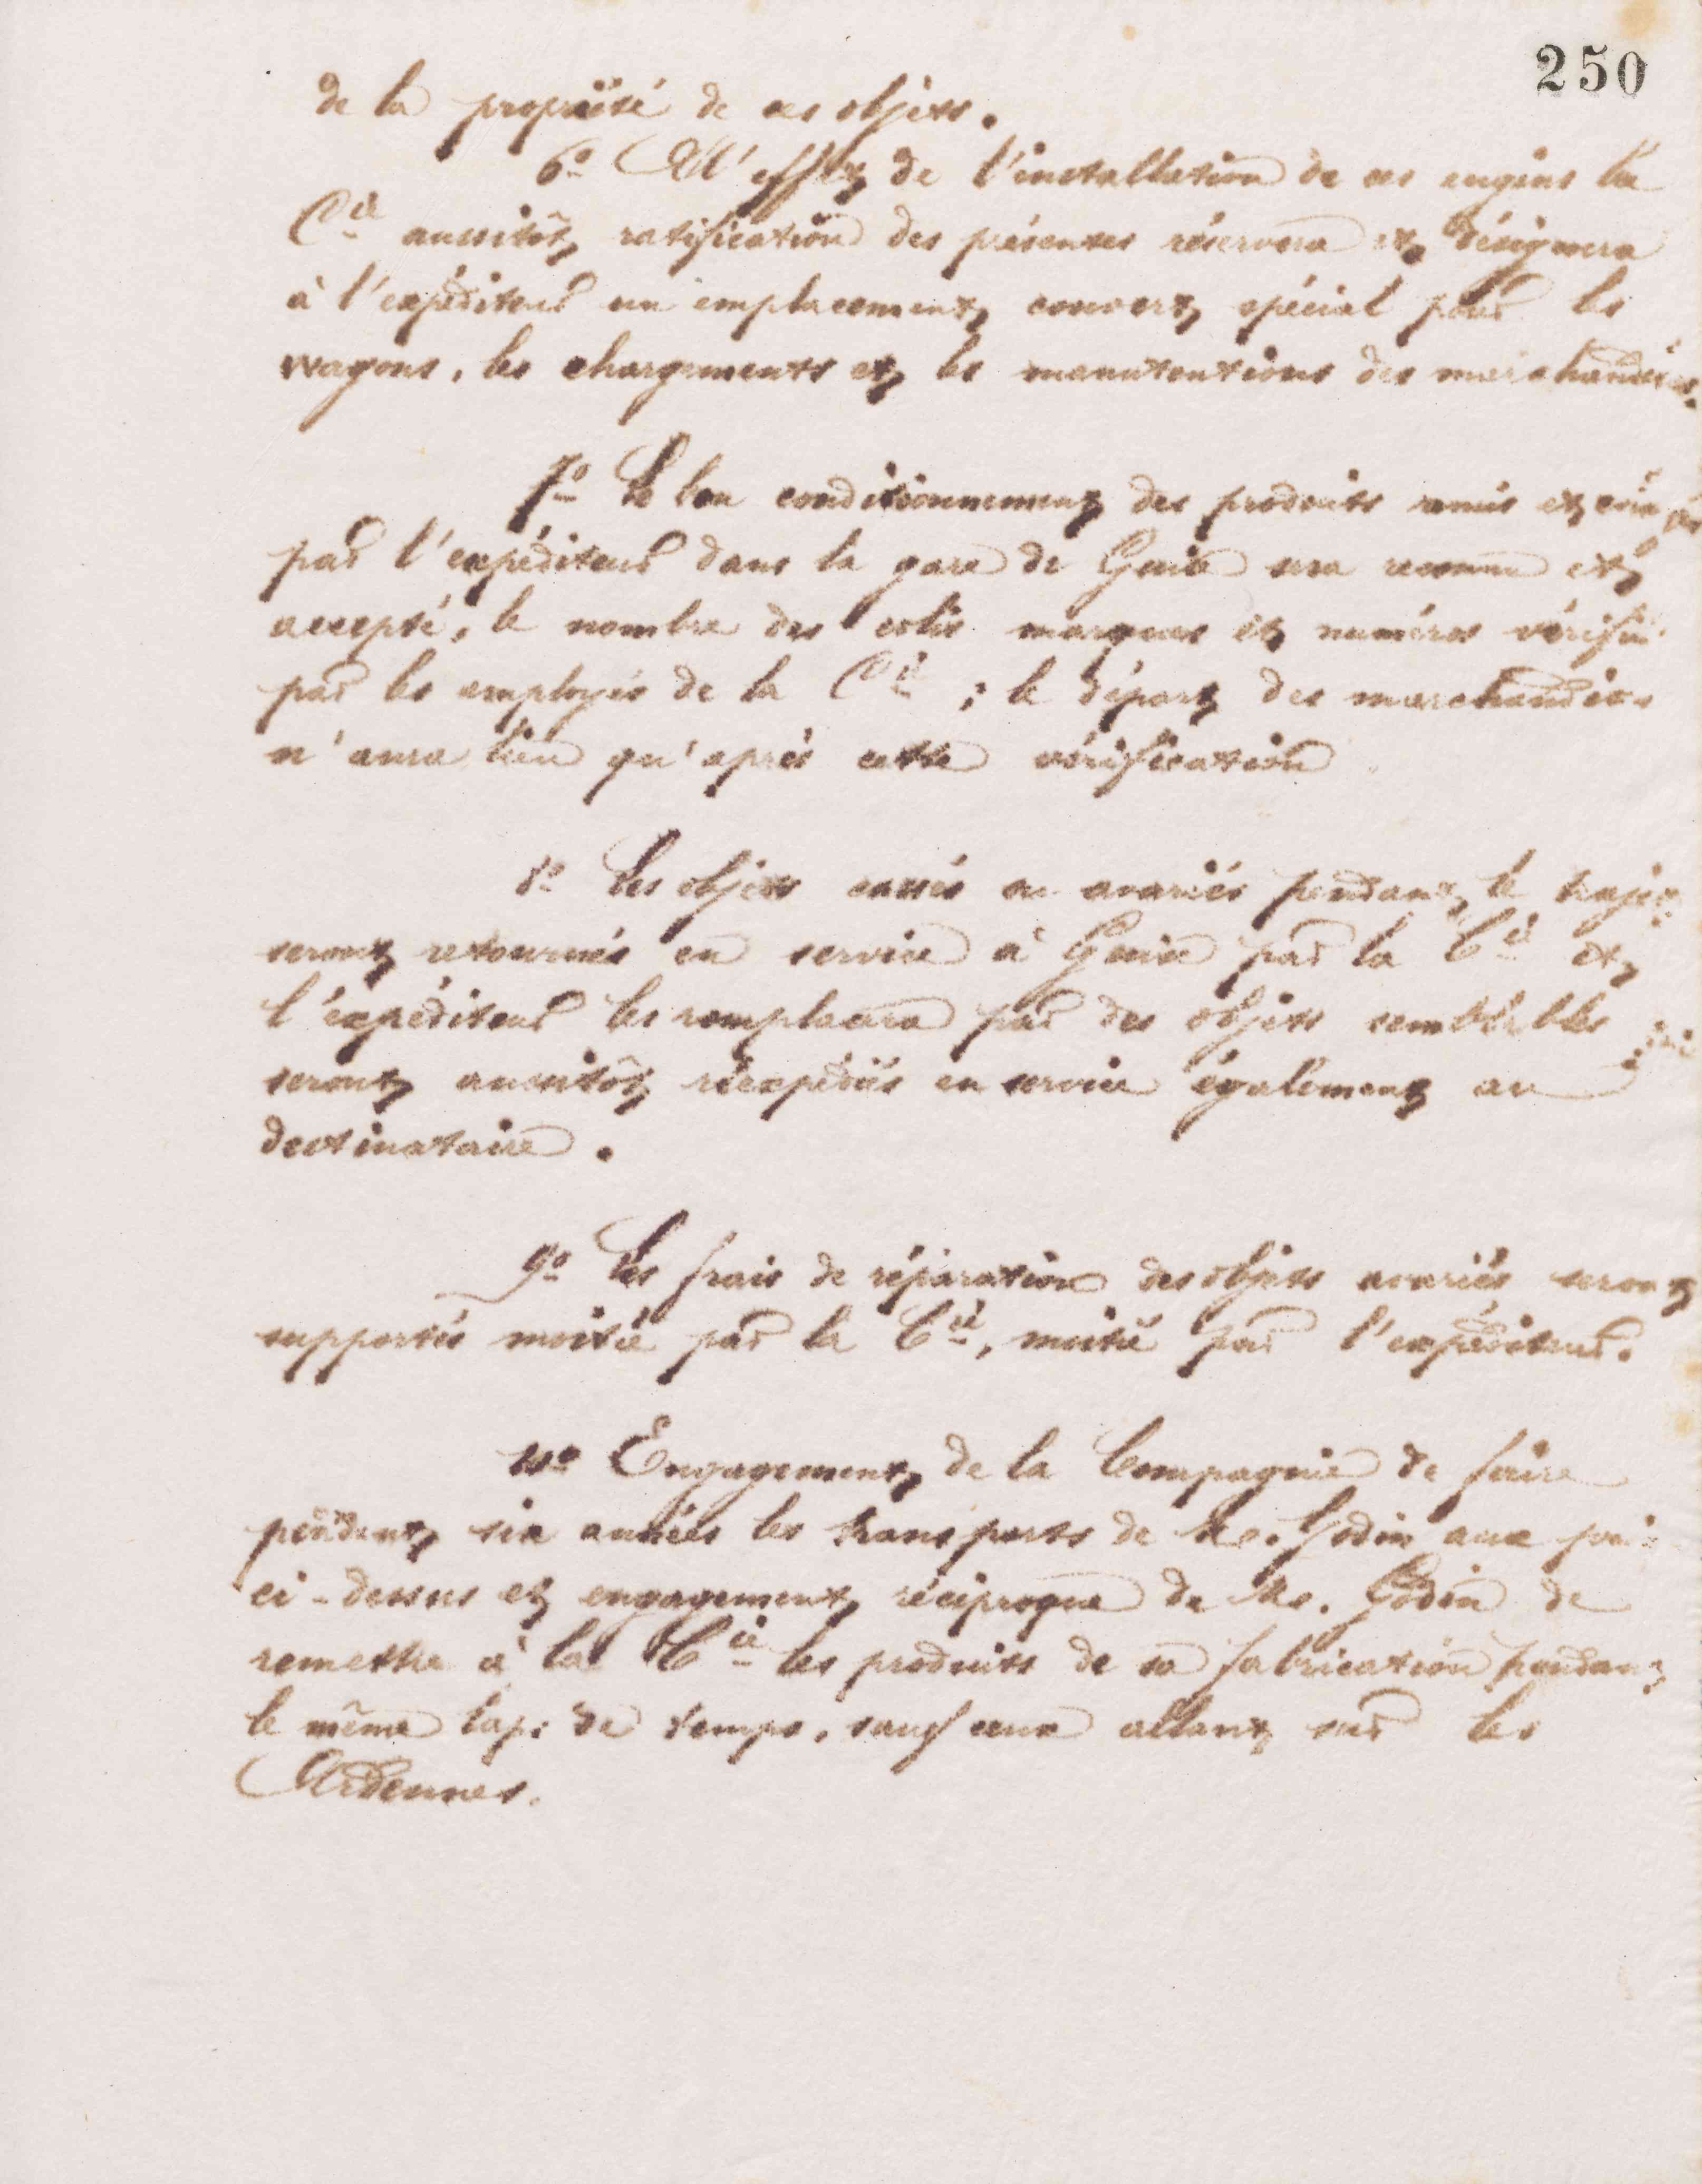 250
de la propriété de ces objets.
6° A l'effet de l'installation de ces engins la
Cie aussitôt ratification des présentes réservera et désignera
à l'expéditeur un emplacement couvert spécial pour les
wagons, les chargements et les manutentions des marchandises.
7° Le bon conditionnement des produits remis et
par l'expéditeur dans la gare de Guise sera reconnu et
accepté, le nombre des colis marques et numéros vérifié
par les employés de la Cie ; le départ des marchandises
n'aura lieu qu'après cette vérification
8° Les objets cassés ou avariés pendant le trajet
seront retournés en service à Guise par la Cie et
l'expéditeur les remplacera par des objets semblables qui
seront aussitôt réexpédiés en service également au
destinataire.
9° Les frais de réparation des objets avariés seront
supportés moitié par la Cie, moitié par l'expéditeur.
10° Engagement de la Compagnie de faire
pendant six années les transports de Mr. Godin aux prix
ci-dessus et engagement réciproque de Mr. Godin de
remettre à la Cie les produits de sa fabrication pendant
le même laps de temps, sauf ceux allant sur les
Ardennes.